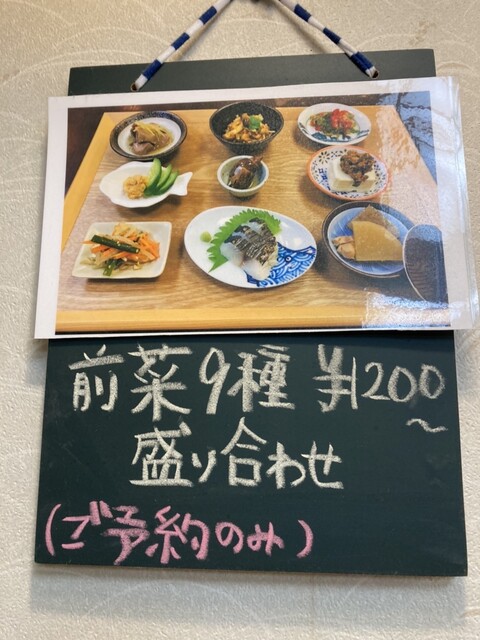 前菜9種 ¥1200〜
盛り合わせ
(ご予約のみ)